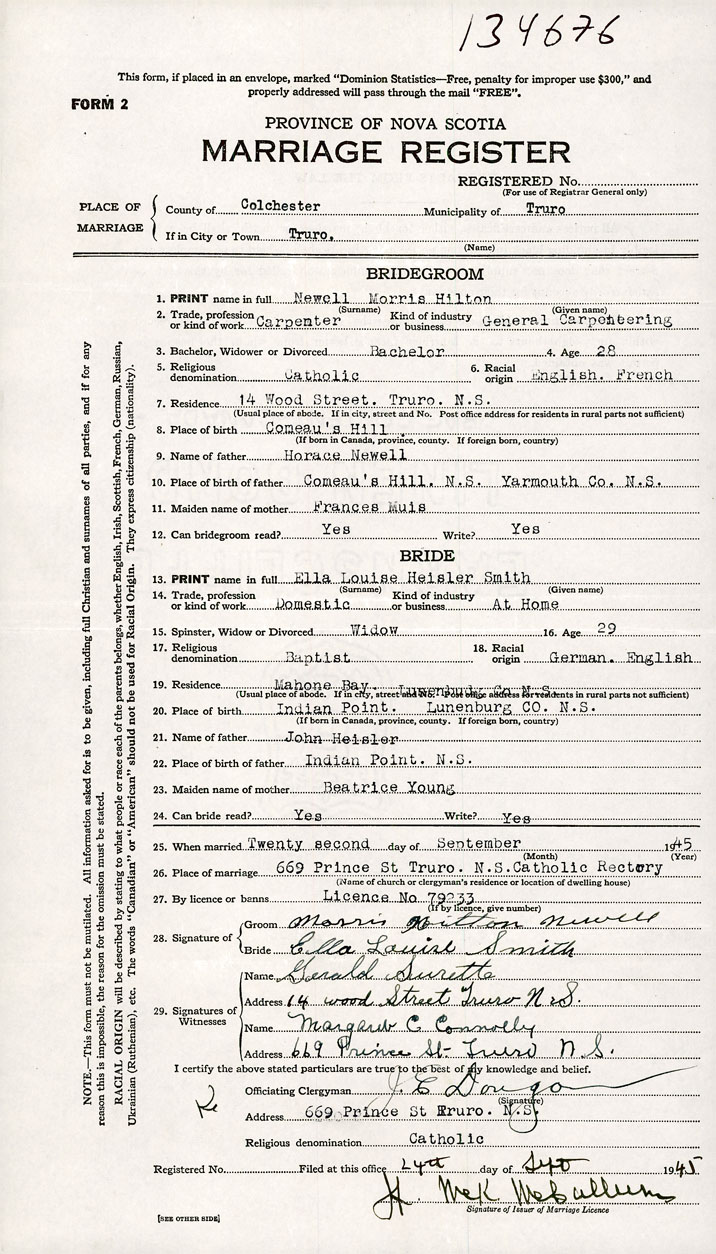 134676
This form, if placed in an envelope, marked "Dominion Statistics—Free, penalty for improper use $300," and
properly addressed will pass through the mail "FREE".
FORM 2
PROVINCE OF NOVA SCOTIA
MARRIAGE REGISTER
REGISTERED No.
(For use of Registrar General only)
PLACE OF MARRIAGE
County of Colchester Municipality of Truro
If in City or Town Truro.
(Name)
BRIDEGROOM
1. PRINT name in full Newell Morris Hilton
(Surname) (Given name)
2. Trade, profession or kind of work Carpenter Kind of industry or business General Carpentering
3. Bachelor, Widower or Divorced Bachelor 4. Age 28
5. Religious denomination Catholic 6. Racial origin English. French
7. Residence 14 Wood Street. Truro. N.S.
(Usual place of abode. If in city, street and No. Post office address for residents in rural parts not sufficient)
8. Place of birth Comeau's Hill
(If born in Canada, province, county. If foreign born, country)
9. Name of father Horace Newell
10. Place of birth of father Comeau's Hill. N.S. Yarmouth Co. N.S.
11. Maiden name of mother Frances Muis
12. Can bridegroom read? Yes Write? Yes
BRIDE
13. PRINT name in full Ella Louise Heisler Smith
(Surname) (Given name)
14. Trade, profession or kind of work Domestic Kind of industry or business At Home
15. Spinster, Widow or Divorced Widow 16. Age 29
17. Religious denomination Baptist 18. Racial origin German. English
19. Residence Mahone Bay. Lunenburg Co N.S.
(Usual place of abode. If in city, street and No. Post office address for residents in rural parts not sufficient)
20. Place of birth Indian Point. Lunenburg CO. N.S.
(If born in Canada, province, county. If foreign born, country)
21. Name of father John Heisler
22. Place of birth of father Indian Point. N.S.
23. Maiden name of mother Beatrice Young
24. Can bride read? Yes Write? Yes
25. When married Twenty second day of September 1945
(Month) (Year)
26. Place of marriage 669 Prince St Truro. N.S. Catholic Rectory
(Name of church or clergyman's residence or location of dwelling house)
27. By licence or banns Licence No 79233
(If by licence, give number)
28. Signature of
Groom Morris Hilton Newell
Bride Ella Louise Smith
29. Signatures of Witnesses
Name Gerald Surette
Address 14 wood Street Truro N.S.
Name Margaret C Connolly
Address 669 Prince St- Truro N.S.
I certify the above stated particulars are true to the best of my knowledge and belief.
Officiating Clergyman J. E
(Signature)
Address 669 Prince St Truro. N.S.
Religious denomination Catholic
Registered No. Filed at this office 24th day of Sept 1945
H McK McCallum
Signature of Issuer of Marriage Licence
[SEE OTHER SIDE]
NOTE.—This form must not be mutilated. All information asked for is to be given, including full Christian and surnames of all parties, and if for any
reason this is impossible, the reason for the omission must be stated.
RACIAL ORIGIN will be described by stating to what people or race each of the parents belongs, whether English, Irish, Scottish, French, German, Russian,
Ukrainian (Ruthenian), etc. The words "Canadian" or "American" should not be used for Racial Origin. They express citizenship (nationality).